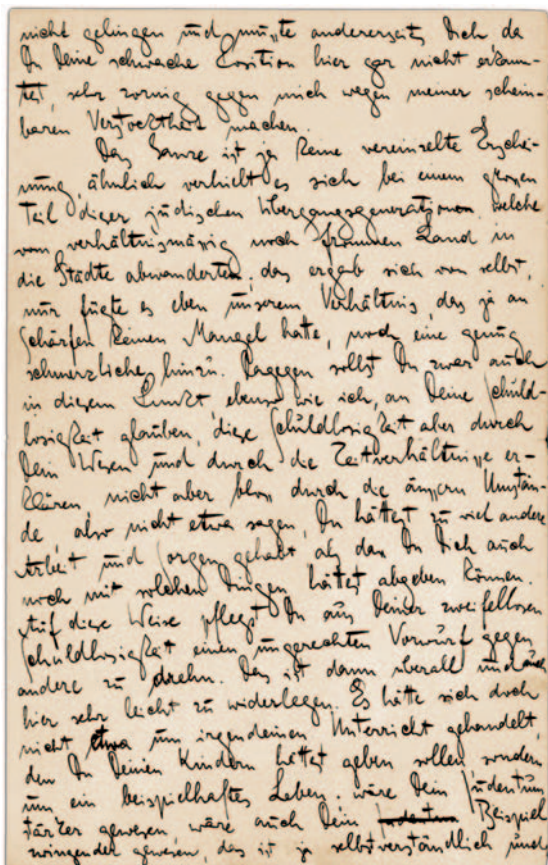 nicht gelingen und musste andererseits Dich da
Du Deine schwache Position hier gar nicht erkann-
test, sehr zornig gegen mich wegen meiner schein-
baren Verstocktheit machen.
Das Ganze ist ja keine vereinzelte Erschei-
nung, ähnlich verhielt es sich bei einem grossen
Teil dieser jüdischen Übergangsgeneration, welche
vom verhältnismässig noch frommen Land in
die Städte abwanderten; das ergab sich von selbst,
nur fügte es eben unserem Verhältnis, das ja an
Schärfen keinen Mangel hatte, noch eine genug
schmerzliche hinzu. Dagegen sollst Du zwar auch
in diesem Punkt, ebenso wie ich, an Deine Schuld-
losigkeit glauben, diese Schuldlosigkeit aber durch
Dein Wesen und durch die Zeitverhältnisse er-
klären, nicht aber bloss durch die äussern Umstän-
de, also nicht etwa sagen, Du hättest zu viel andere
Arbeit und Sorgen gehabt als dass Du Dich auch
noch mit solchen Dingen hättest abgeben können.
Auf diese Weise pflegst Du aus Deiner zweifellosen
Schuldlosigkeit einen ungerechten Vorwurf gegen
andere zu drehn. Das ist dann überall und auch
hier sehr leicht zu widerlegen. Es hätte sich doch
nicht etwa um irgendeinen Unterricht gehandelt,
den Du Deinen Kindern hättest geben sollen, sondern
um ein beispielhaftes Leben; wäre Dein Judentum
stärker gewesen, wäre auch Dein Beispiel
zwingender gewesen, das ist ja selbstverständlich und